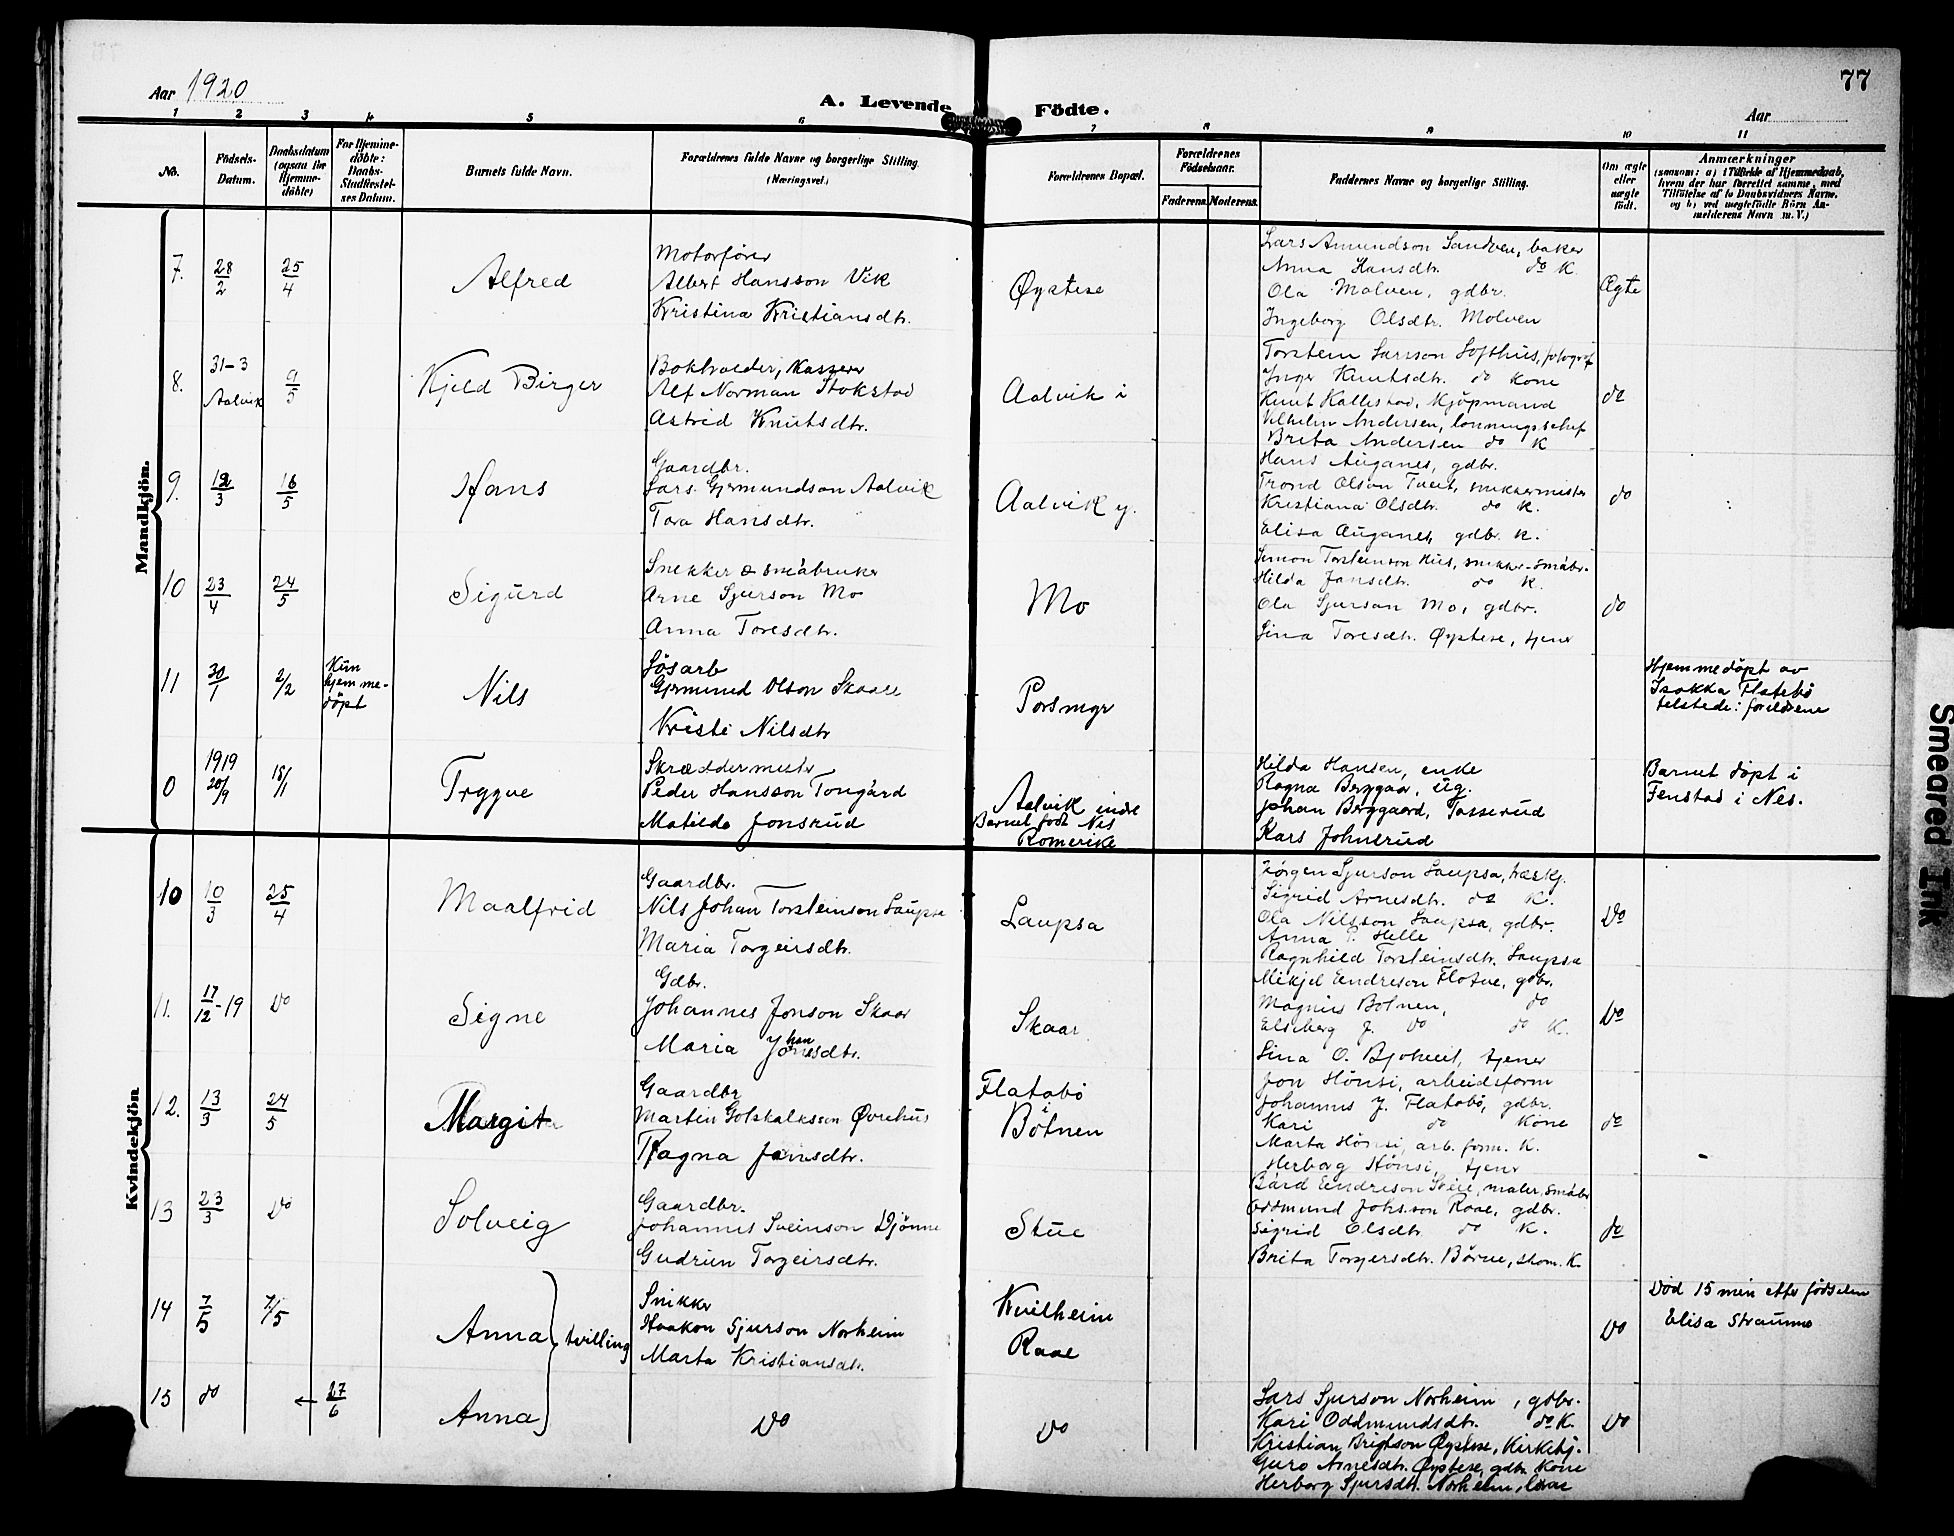 Aar 1920
A. Levende Födte.
77
Aar
1 2 3 4 5 6 7 8 9 10 11
No.
Födsels-Datum.
Daabsdatum (ogsaa for Hjemme-döbte)
For Hjemme-döbte: Daabs-Stadfæstel-ses Datum.
Barnets fulde Navn.
Forældrenes fulde Navne og borgerlige Stilling. (Næringsvei.)
Forældrenes Bopæl.
Forældrenes Födselsaar.
Faderens. Moderens.
Faddernes Navne og borgerlige Stilling.
Om ægte eller uægte födt.
Anmærkninger
(saasom: a) i Tilfælde af Hjemmedaab, hvem der har forrettet samme, med Tilföielse af to Daabsvidners Navne, og b) ved uægtefödte Börn An-melderens Navn m. V.)
Mandkjön.
7. 28/2 25/4
Alfred
Motorfører
Albert Hansson Vik
Kristina Kristiansdtr.
Øystese
Lars Amundson Sandven, baker
Anna Hansdtr. do K.
Ola Molven, gdbr.
Ingeborg Olsdtr. Molven
Ægte
8. 31-3 Aalvik 9/5
Kjeld Birger
Bokholder, Kasserer
Alf Norman Stokstad
Astrid Knutsdtr.
Aalvik i
Torstein Larsson Lofthus, fotograf
Inger Knutsdtr. do kone
Knut Kallestad, Kjøpmand
Vilhelm Andersen, lønningschef
Brita Andersen do K
do
9. 12/3 16/5
Hans
Gaardbr.
Lars Gjermundson Aalvik
Tora Hansdtr.
Aalvik y.
Hans Auganes, gdbr.
Trond Olson Tveit, snikkermester
Kristiana Olsdtr. do K.
Elisa Auganes, gdbr. K.
do
10 23/4 24/5
Sigurd
Snekker & småbruker
Arne Sjurson Mo
Anna Toresdtr.
Mo
Simon Torsteinson Hus, snikker-småbr.
Hilda Jansdtr. do K.
Ola Sjurson Mo, gdbr.
Lina Toresdtr. Øystese, tjener
do
11 30/1 2/2
Kun hjemme-døpt
Nils
Løsarb
Gjermund Olson Skaar
Kristi Nilsdtr
Porsmyr
Hjemmedøpt av
Isakka Flatebø
tilstede: foreldrene
0 1919 20/9 18/1
Trygve
Skræddermester
Peder Hansson Tongård
Matilde Jonsrud
Aalvik indre
Barnet født Nes
Romerike
Hilda Hansen, enke
Ragna Berggaar, ug.
Johan Berggaard, Tasserud
Kars Johnsrud
Barnet døpt i
Fenstad i Nes.
Kvindekjön
10 10/3 25/4
Maalfrid
Gaardbr.
Nils Johan Torsteinson Laupsa
Maria Torgeirsdtr.
Laupsa
Jørgen Sjurson Laupsa,
Sigrid Arnesdtr. do K.
Ola Nilsson Laupsa, gdbr.
Anna P. Helle
Ragnhild Torsteinsdtr. Laupsa
Do
11. 17/12-19 Do
Signe
Gdbr.
Johannes Jonson Skaar
Maria Johansdtr.
Skaar
Mikjel Eendreson Flotve, gdbr.
Magnus Botnen, do
Elseberg J. do do K.
Lina O. Bjotveit, tjener
Do
12. 13/3 24/5
Margit
Gaardbr
Martin Gotskalksson Øvrehus
Ragna Jonsdtr.
Flatabø
i
Botnen
Jon Hønsi, arbeidsform
Johannes J. Flatabø, gdbr.
Kari do Kone
Marta Hønsi, arb. form. K.
Herborg Hønsi, tjener
do
13 23/3 Do
Solveig
Gaardbr.
Johannes Sveinson Djønne
Gudrun Torgeirsdtr.
Stue
Bård Eendreson Steie, maler, småbr
Oddmund Johsson Raae, gdbr.
Sigrid Olsdtr do K.
Brita Torgersdtr. Børve, skom. K.
do
14 7/5 7/5
Anna
Anna } tvilling
Snikker
Haakon Sjurson Norheim
Marta Kristiansdtr.
Kvilheim
Raae
Do
Død 15 min efter fødselen
Elisa Straume
15 do ← 27/6
Do
Do
Lars Sjurson Norheim, gdbr.
Kari Oddmundsdtr. do K.
Kristian Brigtson Øystese, Kirketj.
Guro Arnesdtr. Øystese, gdbr. Kone
Herborg Sjursdtr. Norheim,
Do
Smeared Ink